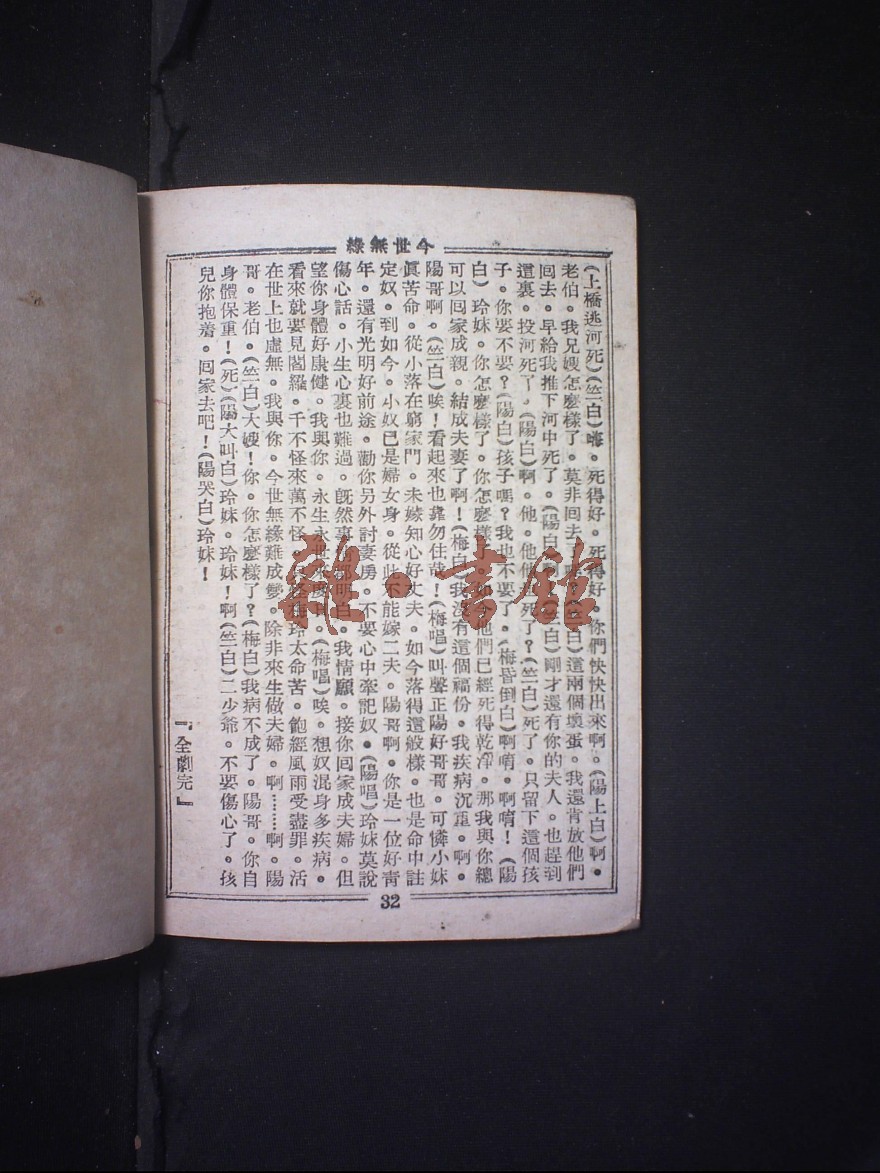 今世無緣
(上橋逃河死)(竺白)嗨。死得好。死得好。你們快快出來啊。(陽上白)啊。
老伯。我兄嫂怎麼樣了。莫非回去了(竺白)這兩個壞蛋。我還肯放他們
回去。早給我推下河中死了。(陽白)(竺白)剛才還有你的夫人。也趕到
這裏。投河死了。(陽白)啊。他。他死了?(竺白)死了。只留下這個孩
子。你要不要?(陽白)孩子嗎?我也不要了。(梅昏倒白)啊唷。啊唷!(陽
白)玲妹。你怎麼樣了。你怎麼樣了。如今他們已經死得乾淨。那我與你總
可以回家成親。結成夫妻了啊!(梅白)我沒有這個福份。我疾病沉重。啊。
陽哥啊。(竺白)唉!看起來也靠勿住哉!(梅唱)叫聲正陽好哥哥。可憐小妹
眞苦命。從小落在窮家門。未嫁知心好丈夫。如今落得這般樣。也是命中註
定奴。到如今。小奴已是婦女身。從此不能嫁二夫。陽哥啊。你是一位好青
年。還有光明好前途。勸你另外討妻房。不要心中牽記奴。(陽唱)玲妹莫說
傷心話。小生心裏也難過。旣然事情都明白。我情願。接你回家成夫婦。但
望你身體好康健。我與你。永生永世來度日。(梅唱)唉。想奴混身多疾病。
看來就要見閻羅。千不怪來萬不怪。只怪梅玲太命苦。飽經風雨受盡罪。活
在世上也虛無。我與你。今世無緣難成雙。除非來生做夫婦。啊………啊。陽
哥。老伯。(竺白)大嫂!你。你怎麼樣了?(梅白)我病不成了。陽哥。你自
身體保重!(死)(陽大叫白)玲妹。玲妹!啊(竺白)二少爺。不要傷心了。孩
兒你抱着。回家去吧!(陽哭白)玲妹!
『全劇完』
32
雜·書館